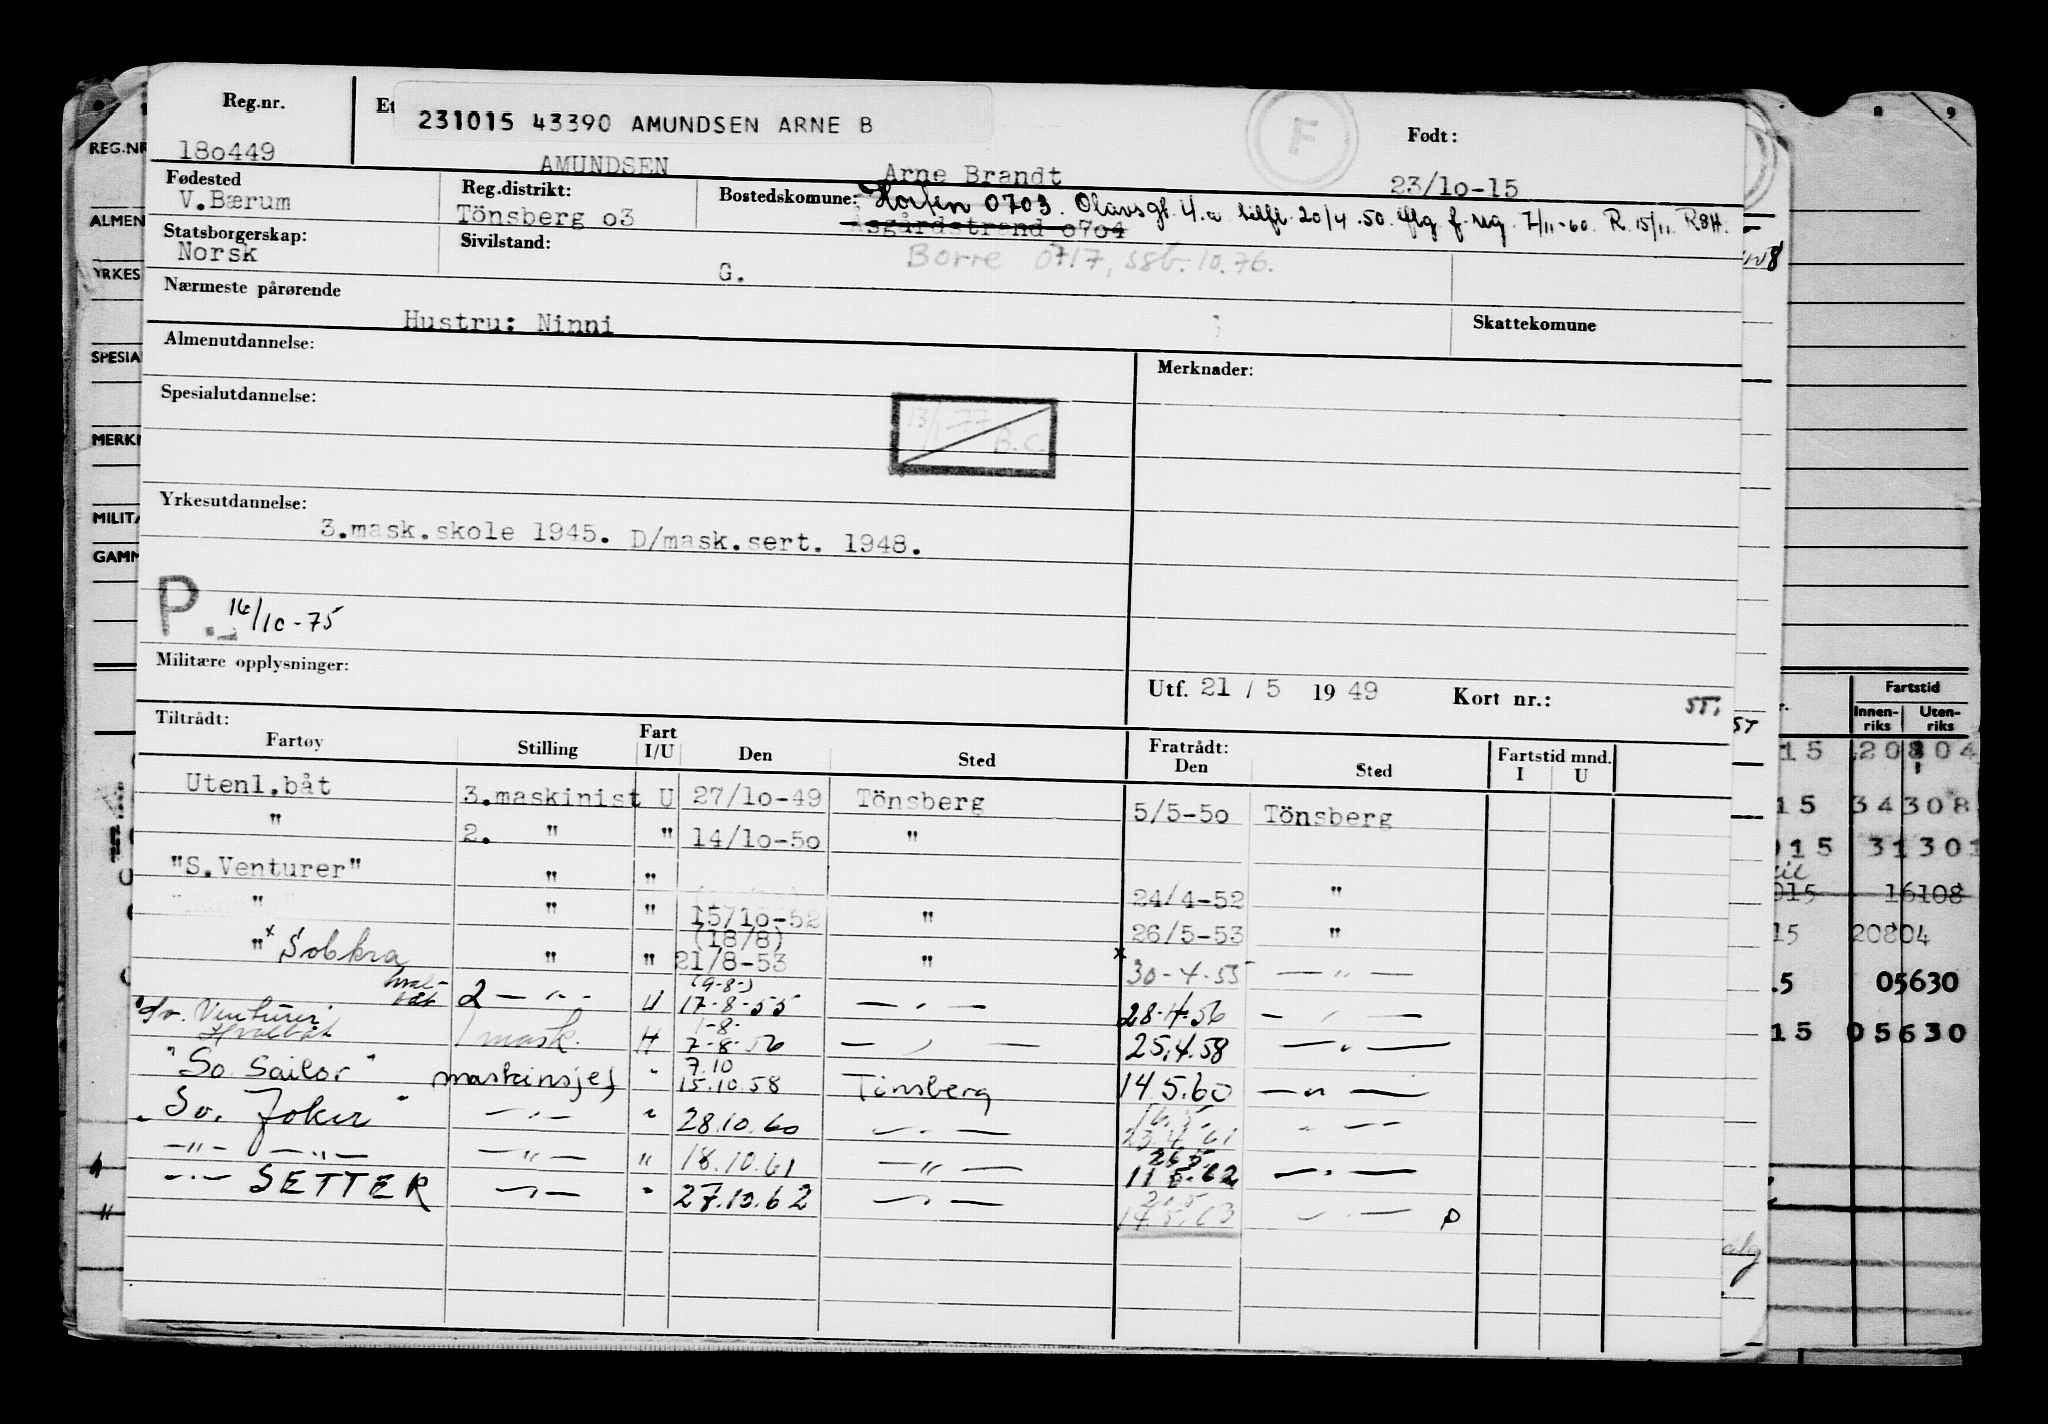 Reg.nr.
231015 43390 AMUNDSEN ARNE B
F
Født:
REG.NR
180449
AMUNDSEN Arne Brandt 23/10-15
Fødested Reg.distrikt: Bostedskommune: Horten 0703. Olavsgt. 4.a tilfl. 20/4.50. iflg f.reg. 7/11-60. R. 15/11. RBH.
V.Bærum Tönsberg 03 Åsgårdstrand 0704
ALMEN
Statsborgerskap: Sivilstand:
Norsk G. Borre 0717, 10.76.
YRKES
Nærmeste pårørende
Hustru: Ninni Skattekomune
Almenutdannelse: Merknader:
SPESIA
Spesialutdannelse:
13/1 77 B.C.
MERK
Yrkesutdannelse:
3.mask.skole 1945. D/mask.sert. 1948.
MILITÆ
GAMM
P. 14/10-75
Militære opplysninger:
Utf. 21 / 5 1949 Kort nr.: 55.
Tiltrådt: Fratrådt:
Fartøy Stilling Fart I/U Den Sted Den Sted Fartstid mnd. I U
Fartstid
Innen-riks Uten-riks
Utenl.båt 3.maskinist U 27/10-49 Tönsberg 5/5-50 Tönsberg
" 2. " " 14/10-50 "
"S.Venturer" " " 24/4-52 "
" " " 15/10-52 " 26/5-53 "
(18/8)
" x Sobkra " " 21/8-53 " x 30-4-55 — " —
hval-båt 2 — " — U (9-8-) 17-8-55 — " — 28-4-56 — " —
So. Venturer Hvalbåt 1 mask. H 1-8- 7-8-56 — " — 25.4.58 — " —
"So. Sailor" maskinsjef " 7.10 15.10.58 Tönsberg 14.5.60 — " —
"So. Joker" — " — " 28.10.60 — " — 16.5- 23.4.61 — " —
— " — — " — — " — " 18.10.61 — " — 26.5 11.5.62 — " —
— " — SETTER — " — " 27.10.62 — " — 21.5 14.5.63 — " — P
15 20804
15 34308
015 31301
015 16108
15 20804
.5 05630
15 05630